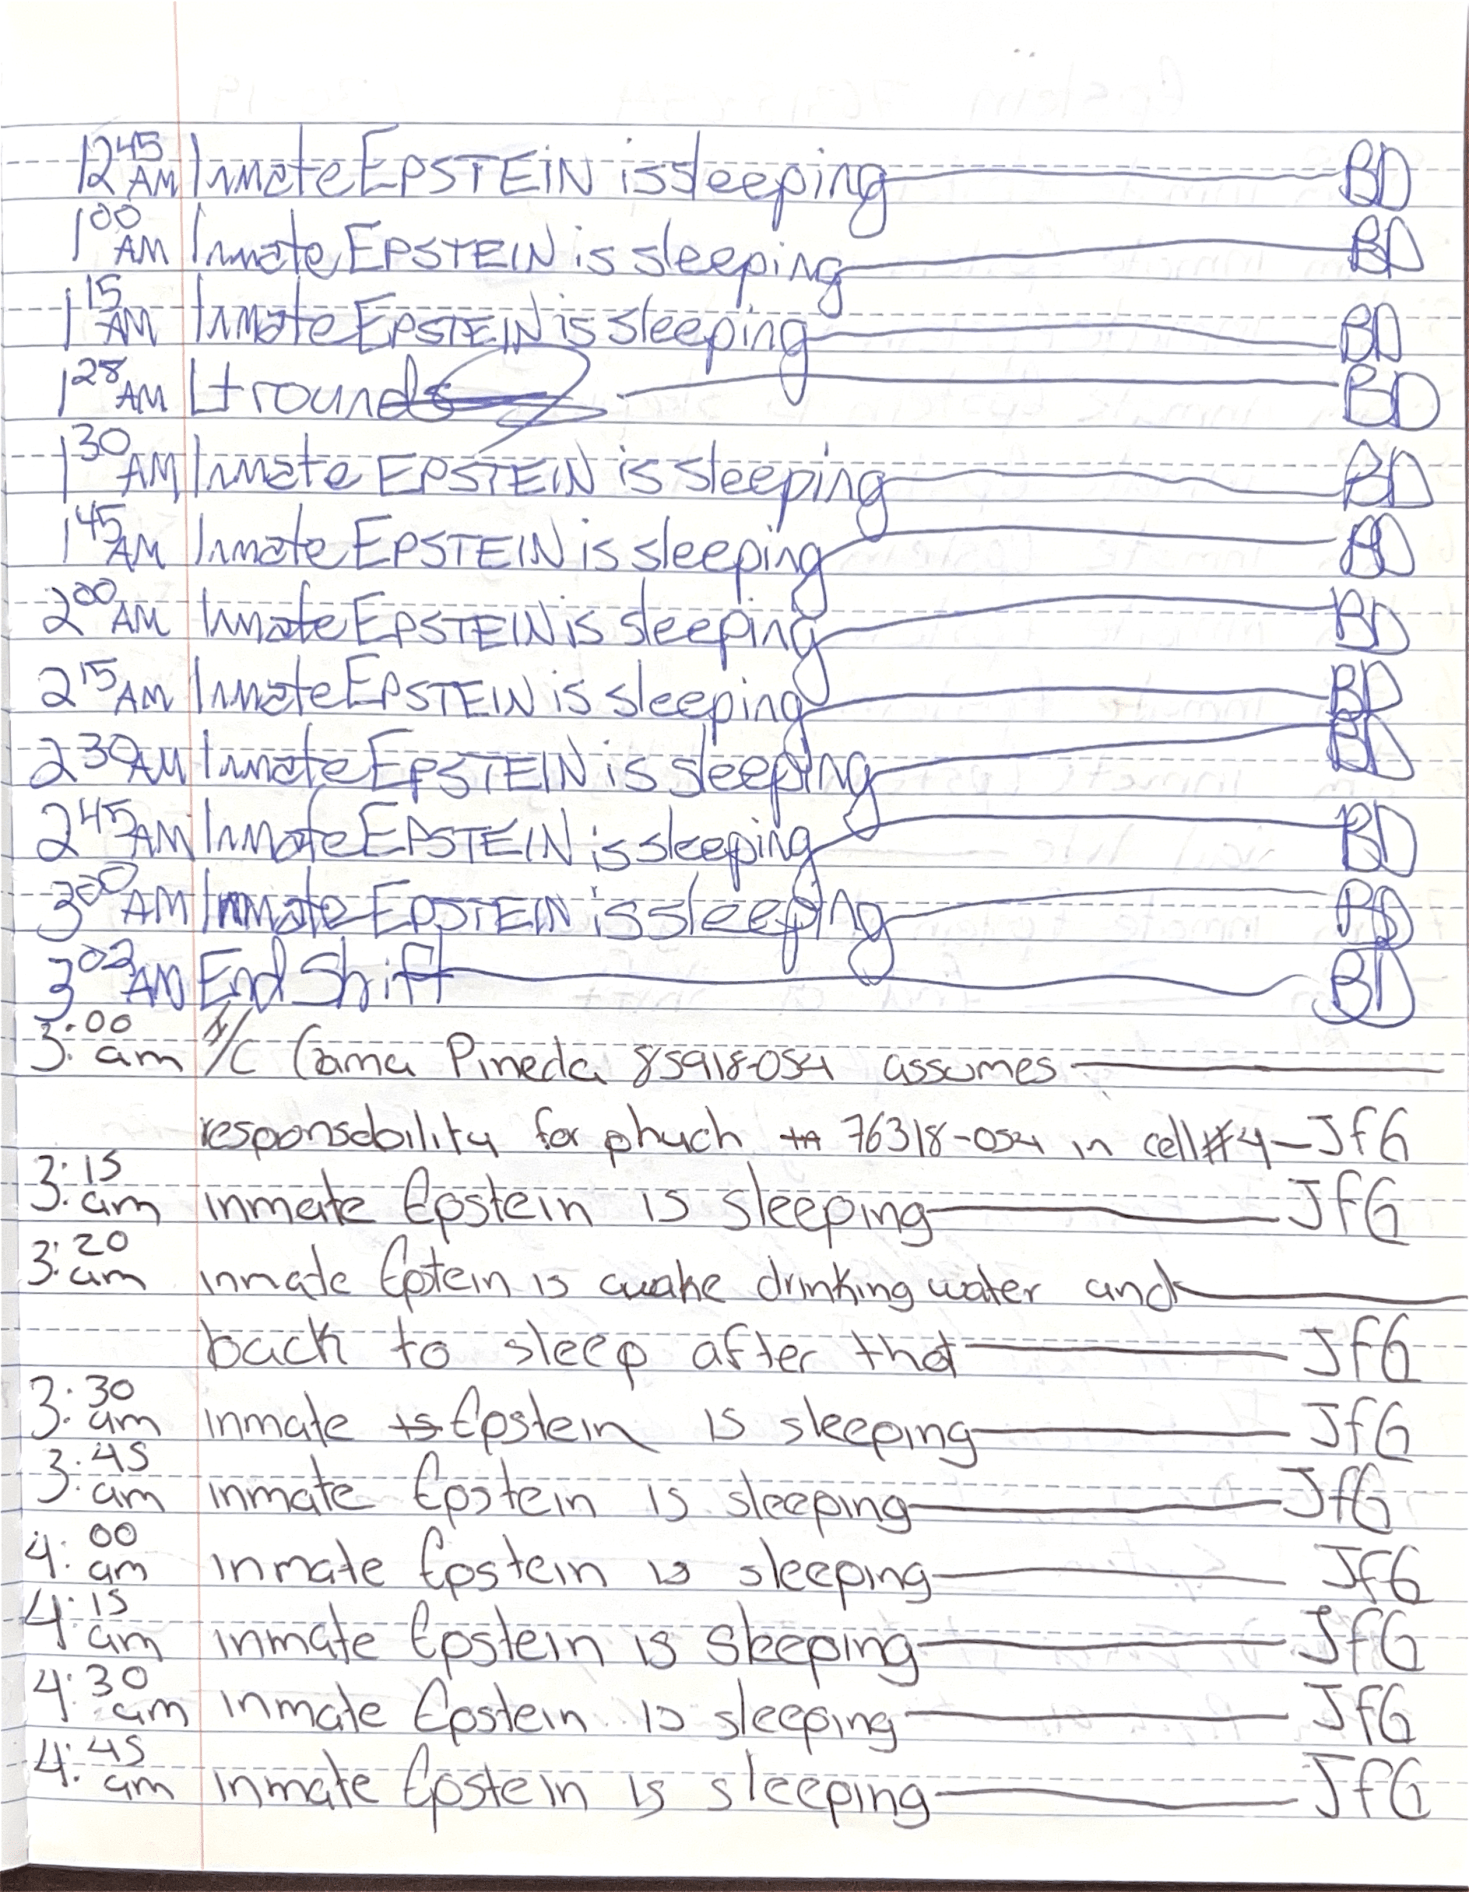 12 45 AM Inmate EPSTEIN is sleeping BD
1 00 AM Inmate EPSTEIN is sleeping BD
1 15 AM Inmate EPSTEIN is sleeping BD
1 28 AM Lt rounds BD
1 30 AM Inmate EPSTEIN is sleeping BD
1 45 AM Inmate EPSTEIN is sleeping BD
2 00 AM Inmate EPSTEIN is sleeping BD
2 15 AM Inmate EPSTEIN is sleeping BD
2 30 AM Inmate EPSTEIN is sleeping BD
2 45 AM Inmate EPSTEIN is sleeping BD
3 00 AM Inmate EPSTEIN is sleeping BD
3 02 AM End Shift BD
3:00 am I/C Gama Pineda 85918-054 assumes
responsebility for phych 76318-054 in cell #4 - JfG
3:15 am inmate Epstein is sleeping JfG
3:20 am inmate Epstein is awake drinking water and
back to sleep after that JfG
3:30 am inmate is Epstein is sleeping JfG
3:45 am inmate Epstein is sleeping JfG
4:00 am inmate Epstein is sleeping JfG
4:15 am inmate Epstein is sleeping JfG
4:30 am inmate Epstein is sleeping JfG
4:45 am inmate Epstein is sleeping JfG